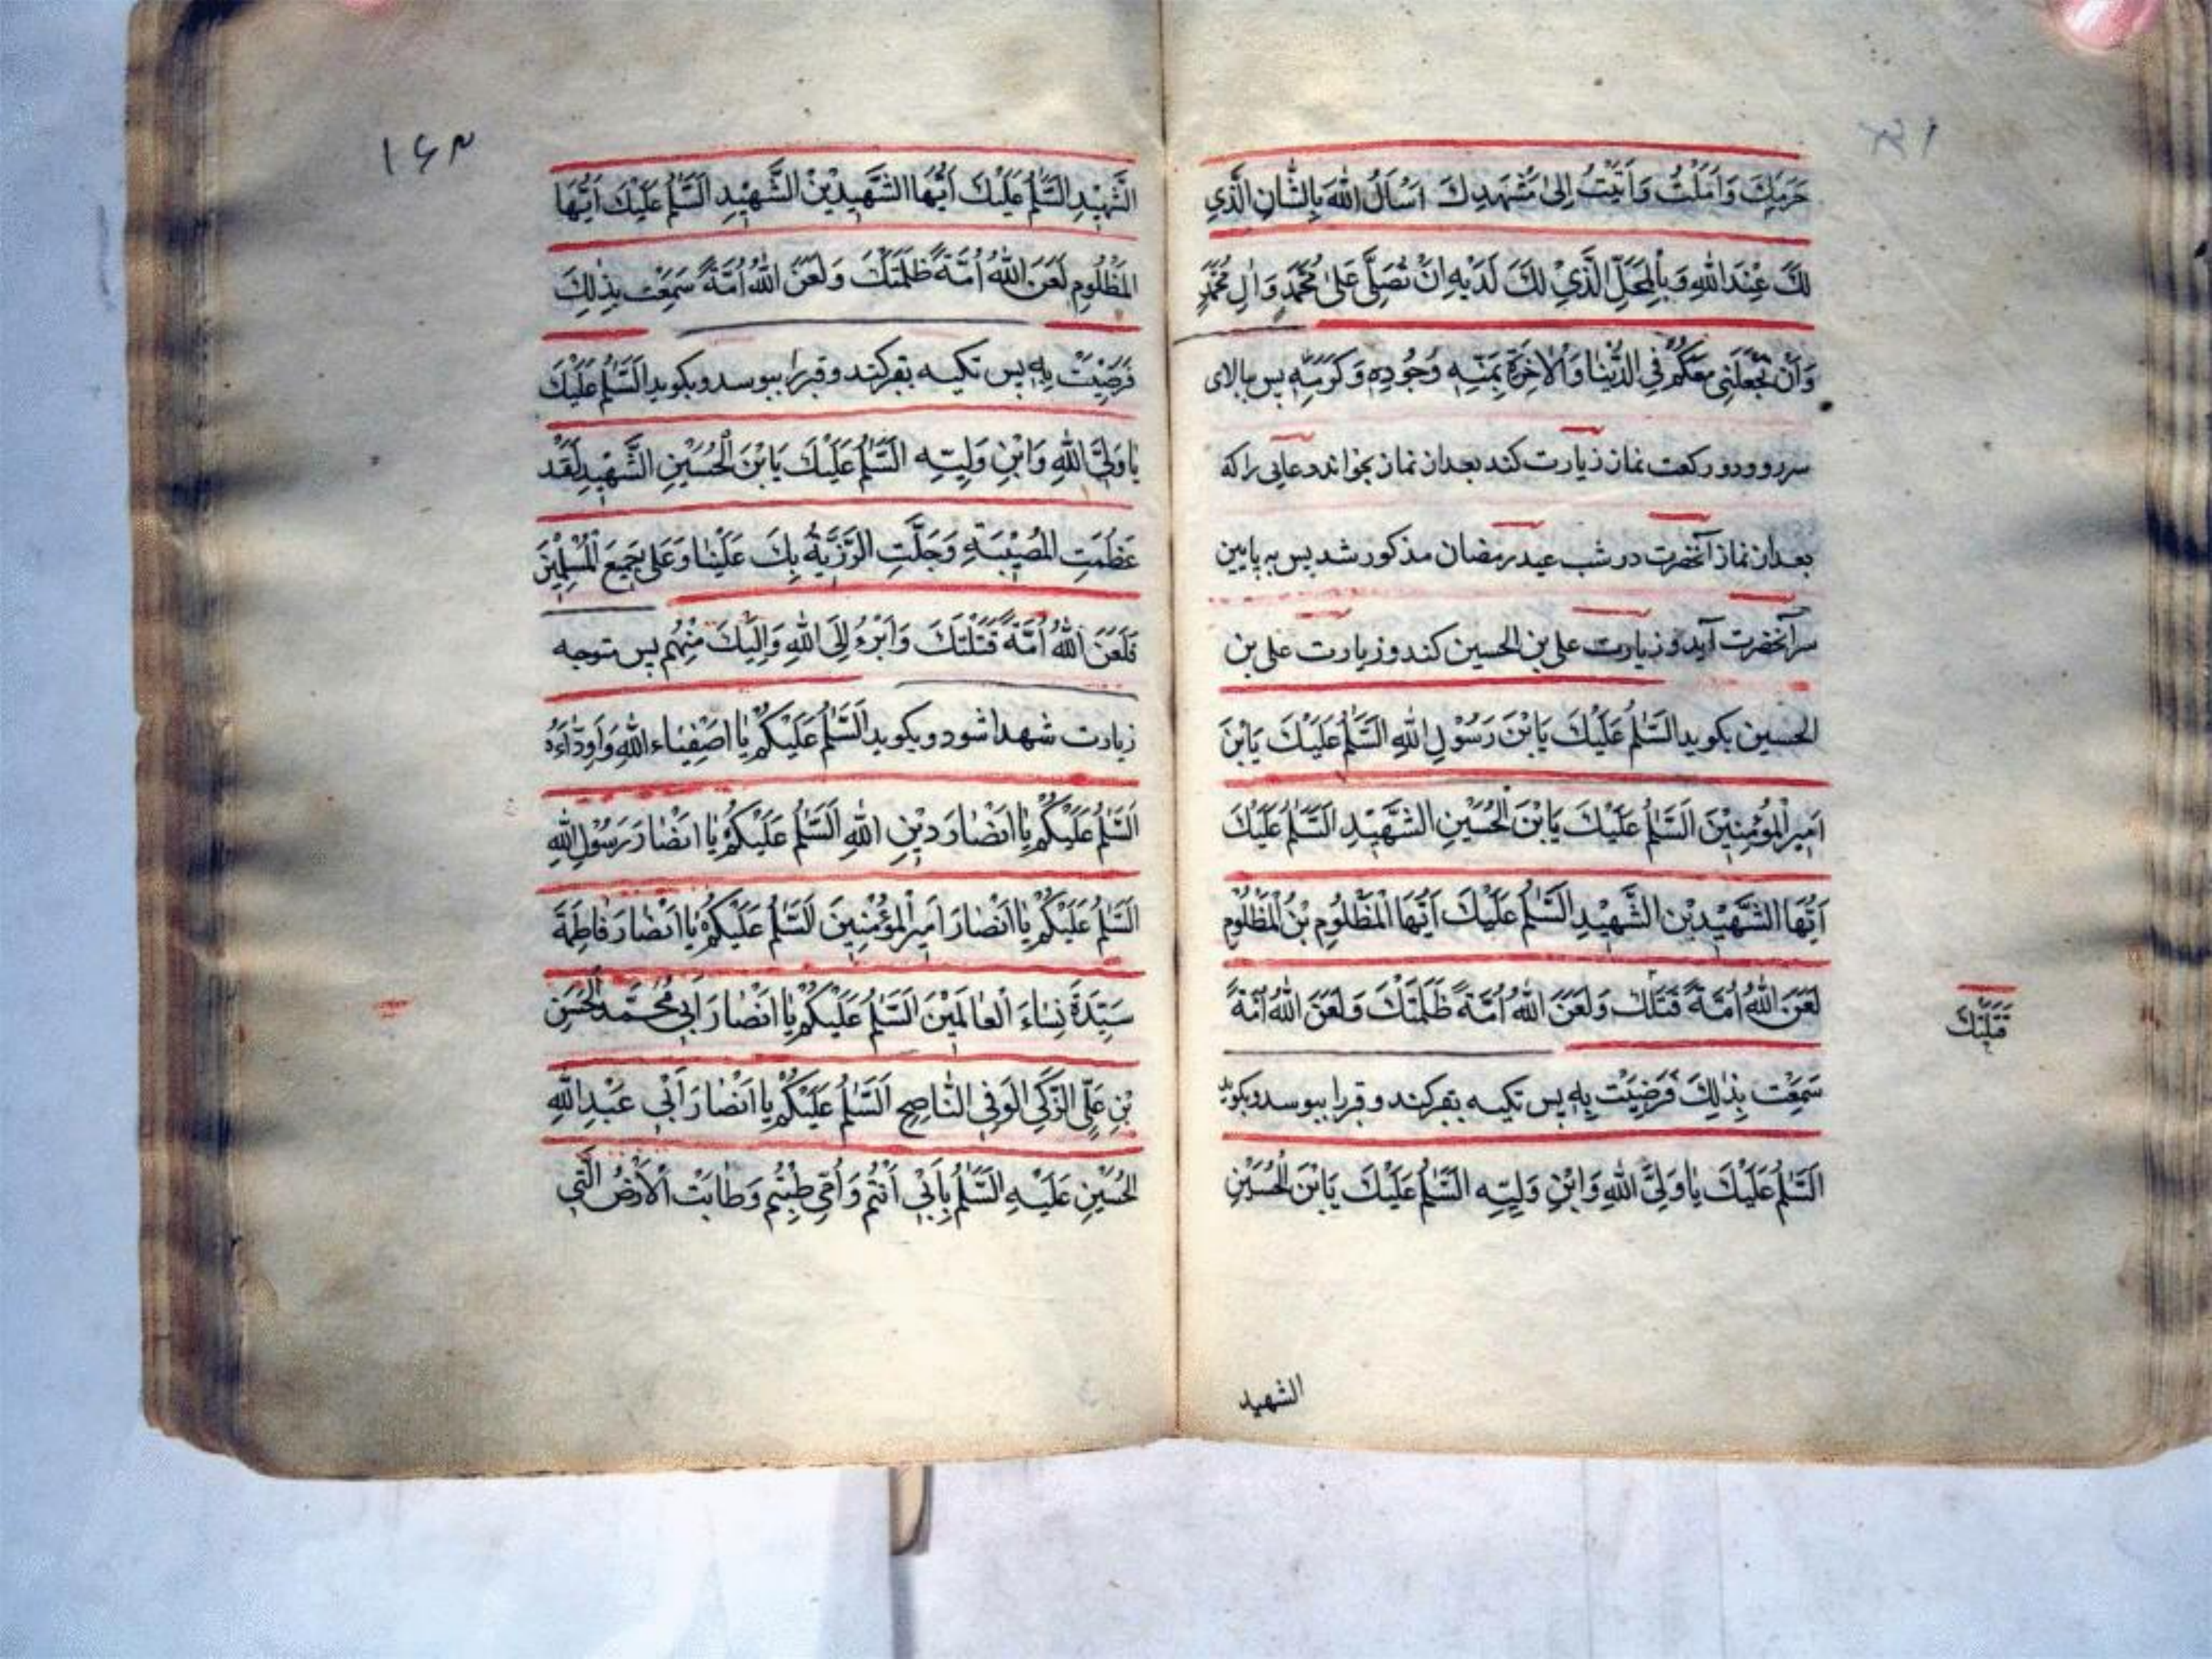 حَرَمِكَ وَاَمَلْتُ وَاَتَيْتُ اِلىٰ مَشْهَدِكَ اَسْاَلُ اللهَ بِالشَّانِ الَّذِي
لَكَ عِنْدَ اللهِ وَبِالْمَحَلِّ الَّذِيْ لَكَ لَدَيْهِ اَنْ تُصَلِّىَ عَلىٰ مُحَمَّدٍ وَاٰلِ مُحَمَّدٍ
وَاَنْ تَجْعَلَنِى مَعَكُمْ فِي الدُّنْيٰا وَالْاٰخِرَةِ بِمَنِّهٖ وَجُوْدِهٖ وَكَرَمِهٖ پس ببالاى
سر رود و دو ركعت نماز زيارت كند بعد از نماز بخواند دعايى را كه
بعد از نماز آنحضرت در شب عيد رمضان مذكور شد پس به پايين
سر آنحضرت آيد و زيارت على بن الحسين كند و زيارت على بن
الحسين بكويد اَلسَّلٰمُ عَلَيْكَ يَابْنَ رَسُوْلِ اللهِ اَلسَّلٰمُ عَلَيْكَ يَابْنَ
اَمِيرِ الْمُؤْمِنِيْنَ اَلسَّلٰمُ عَلَيْكَ يَابْنَ الْحُسَيْنِ الشَّهِيْدِ اَلسَّلٰمُ عَلَيْكَ
اَيُّهَا الشَّهِيْدِ بْنَ الشَّهِيْدِ اَلسَّلٰمُ عَلَيْكَ اَيُّهَا الْمَظْلُوْمِ بْنُ الْمَظْلُوْمِ
لَعَنَ اللهُ اُمَّةً قَتَلَكَ وَلَعَنَ اللهُ اُمَّةً ظَلَمَتْكَ وَلَعَنَ اللهُ اُمَّةً
قَتَلَتْكَ
سَمِعَتْ بِذٰلِكَ فَرَضِيَتْ بِهٖ پس تكيه بقبر كند و قبر را ببوسد و بكويد
اَلسَّلٰمُ عَلَيْكَ يٰا وَلِىَّ اللهِ وَابْنَ وَلِيِّهٖ اَلسَّلٰمُ عَلَيْكَ يَابْنَ الْحُسَيْنِ
الشهيد
١٦٣
الشَّهِيْدِ اَلسَّلٰمُ عَلَيْكَ اَيُّهَا الشَّهِيْدِيْنْ الشَّهِيْدِ اَلسَّلٰمُ عَلَيْكَ اَيُّهَا
الْمَظْلُوْمِ لَعَنَ اللهُ اُمَّةً ظَلَمَتْكَ وَلَعَنَ اللهُ اُمَّةً سَمِعَتْ بِذٰلِكَ
فَرَضِيَتْ بِهٖ پس تكيه بقبر كند و قبر را ببوسد و بكويد اَلسَّلٰمُ عَلَيْكَ
يٰا وَلِىَّ اللهِ وَابْنِ وَلِيِّهٖ اَلسَّلٰمُ عَلَيْكَ يَابْنَ الْحُسَيْنِ الشَّهِيْدِ لَقَدْ
عَظُمَتِ الْمُصِيْبَةِ وَجَلَّتِ الرَّزِيَّةُ بِكَ عَلَيْنٰا وَعَلىٰ جَمِيْعِ الْمُسْلِمِيْنَ
فَلَعَنَ اللهُ اُمَّةً قَتَلَتْكَ وَاَبْرَءُ اِلَى اللهِ وَاِلَيْكَ مِنْهُمْ پس متوجه
زيارت شهدا شود و بكويد اَلسَّلٰمُ عَلَيْكُمْ يٰا اَصْفِيٰاءَ اللهِ وَاَوِدّٰاءَهُ
اَلسَّلٰمُ عَلَيْكُمْ يٰا اَنْصٰارَ دِيْنِ اللهِ اَلسَّلٰمُ عَلَيْكُمْ يٰا اَنْصٰارَ رَسُوْلِ اللهِ
اَلسَّلٰمُ عَلَيْكُمْ يٰا اَنْصٰارَ اَمِيْرِ الْمُؤْمِنِيْنَ اَلسَّلٰمُ عَلَيْكُمْ يٰا اَنْصٰارَ فَاطِمَةَ
سَيِّدَةِ نِسٰاءِ الْعٰالَمِيْنَ اَلسَّلٰمُ عَلَيْكُمْ يٰا اَنْصٰارَ اَبِى مُحَمَّدِ الْحَسَنِ
بْنِ عَلِىِّ الزَّكِىِّ الْوَفِى النّٰاصِحِ اَلسَّلٰمُ عَلَيْكُمْ يٰا اَنْصٰارَ اَبِىْ عَبْدِ اللهِ
الْحُسَيْنِ عَلَيْهِ السَّلٰمُ بِاَبِىْ اَنْتُمْ وَاُمِّى طِبْتُمْ وَطٰابَتْ الْاَرْضُ الَّتِى